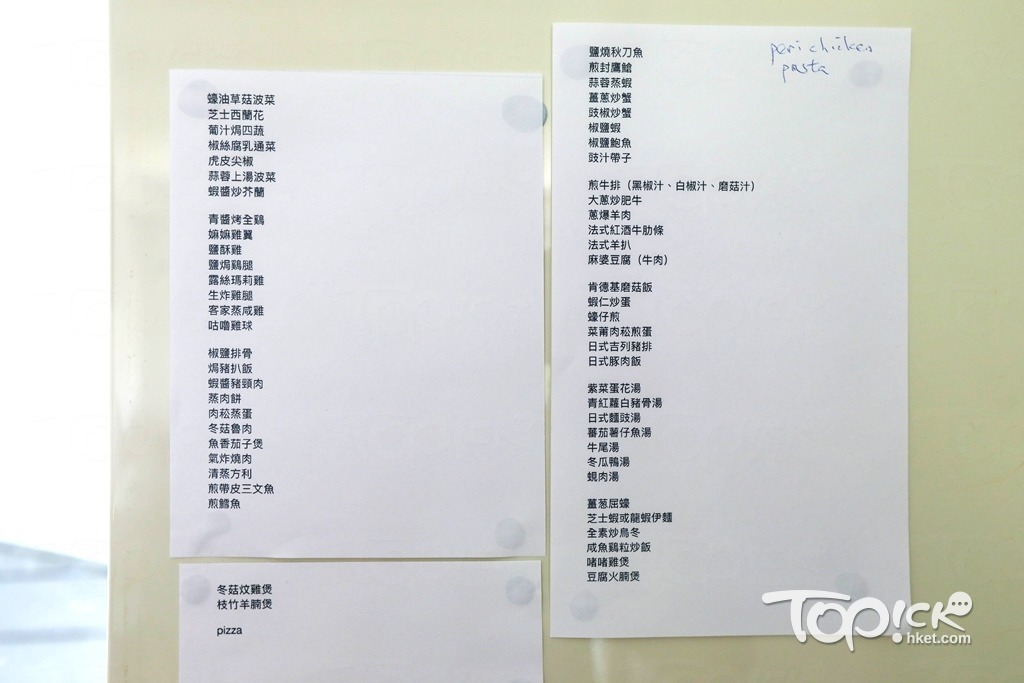 蠔油草菇波菜
芝士西蘭花
葡汁焗四蔬
椒絲腐乳通菜
虎皮尖椒
蒜蓉上湯波菜
蝦醬炒芥蘭
青醬烤全鷄
嫲嫲雞翼
鹽酥雞
鹽焗鷄腿
露絲瑪莉雞
生炸雞腿
客家蒸咸雞
咕嚕雞球
椒鹽排骨
焗豬扒飯
蝦醬豬頸肉
蒸肉餅
肉菘蒸蛋
冬菇魯肉
魚香茄子煲
氣炸燒肉
清蒸方利
煎帶皮三文魚
煎鱈魚
冬菇炆雞煲
枝竹羊腩煲
pizza
peri chicken
pasta
鹽燒秋刀魚
煎封鷹鯧
蒜蓉蒸蝦
薑蔥炒蟹
豉椒炒蟹
椒鹽蝦
椒鹽鮑魚
豉汁帶子
煎牛排（黑椒汁、白椒汁、磨菇汁）
大蔥炒肥牛
蔥爆羊肉
法式紅酒牛肋條
法式羊扒
麻婆豆腐（牛肉）
肯德基磨菇飯
蝦仁炒蛋
蠔仔煎
菜莆肉菘煎蛋
日式吉列豬排
日式豚肉飯
紫菜蛋花湯
青紅蘿白豬骨湯
日式麵豉湯
蕃茄薯仔魚湯
牛尾湯
冬瓜鴨湯
蜆肉湯
薑葱屈蠔
芝士蝦或龍蝦伊麵
全素炒烏冬
咸魚鷄粒炒飯
啫啫雞煲
豆腐火腩煲
TOPICK
hket.com